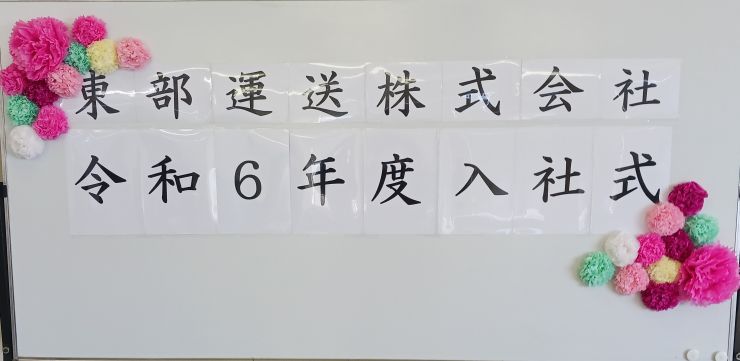 東部運送株式会社
令和6年度入社式